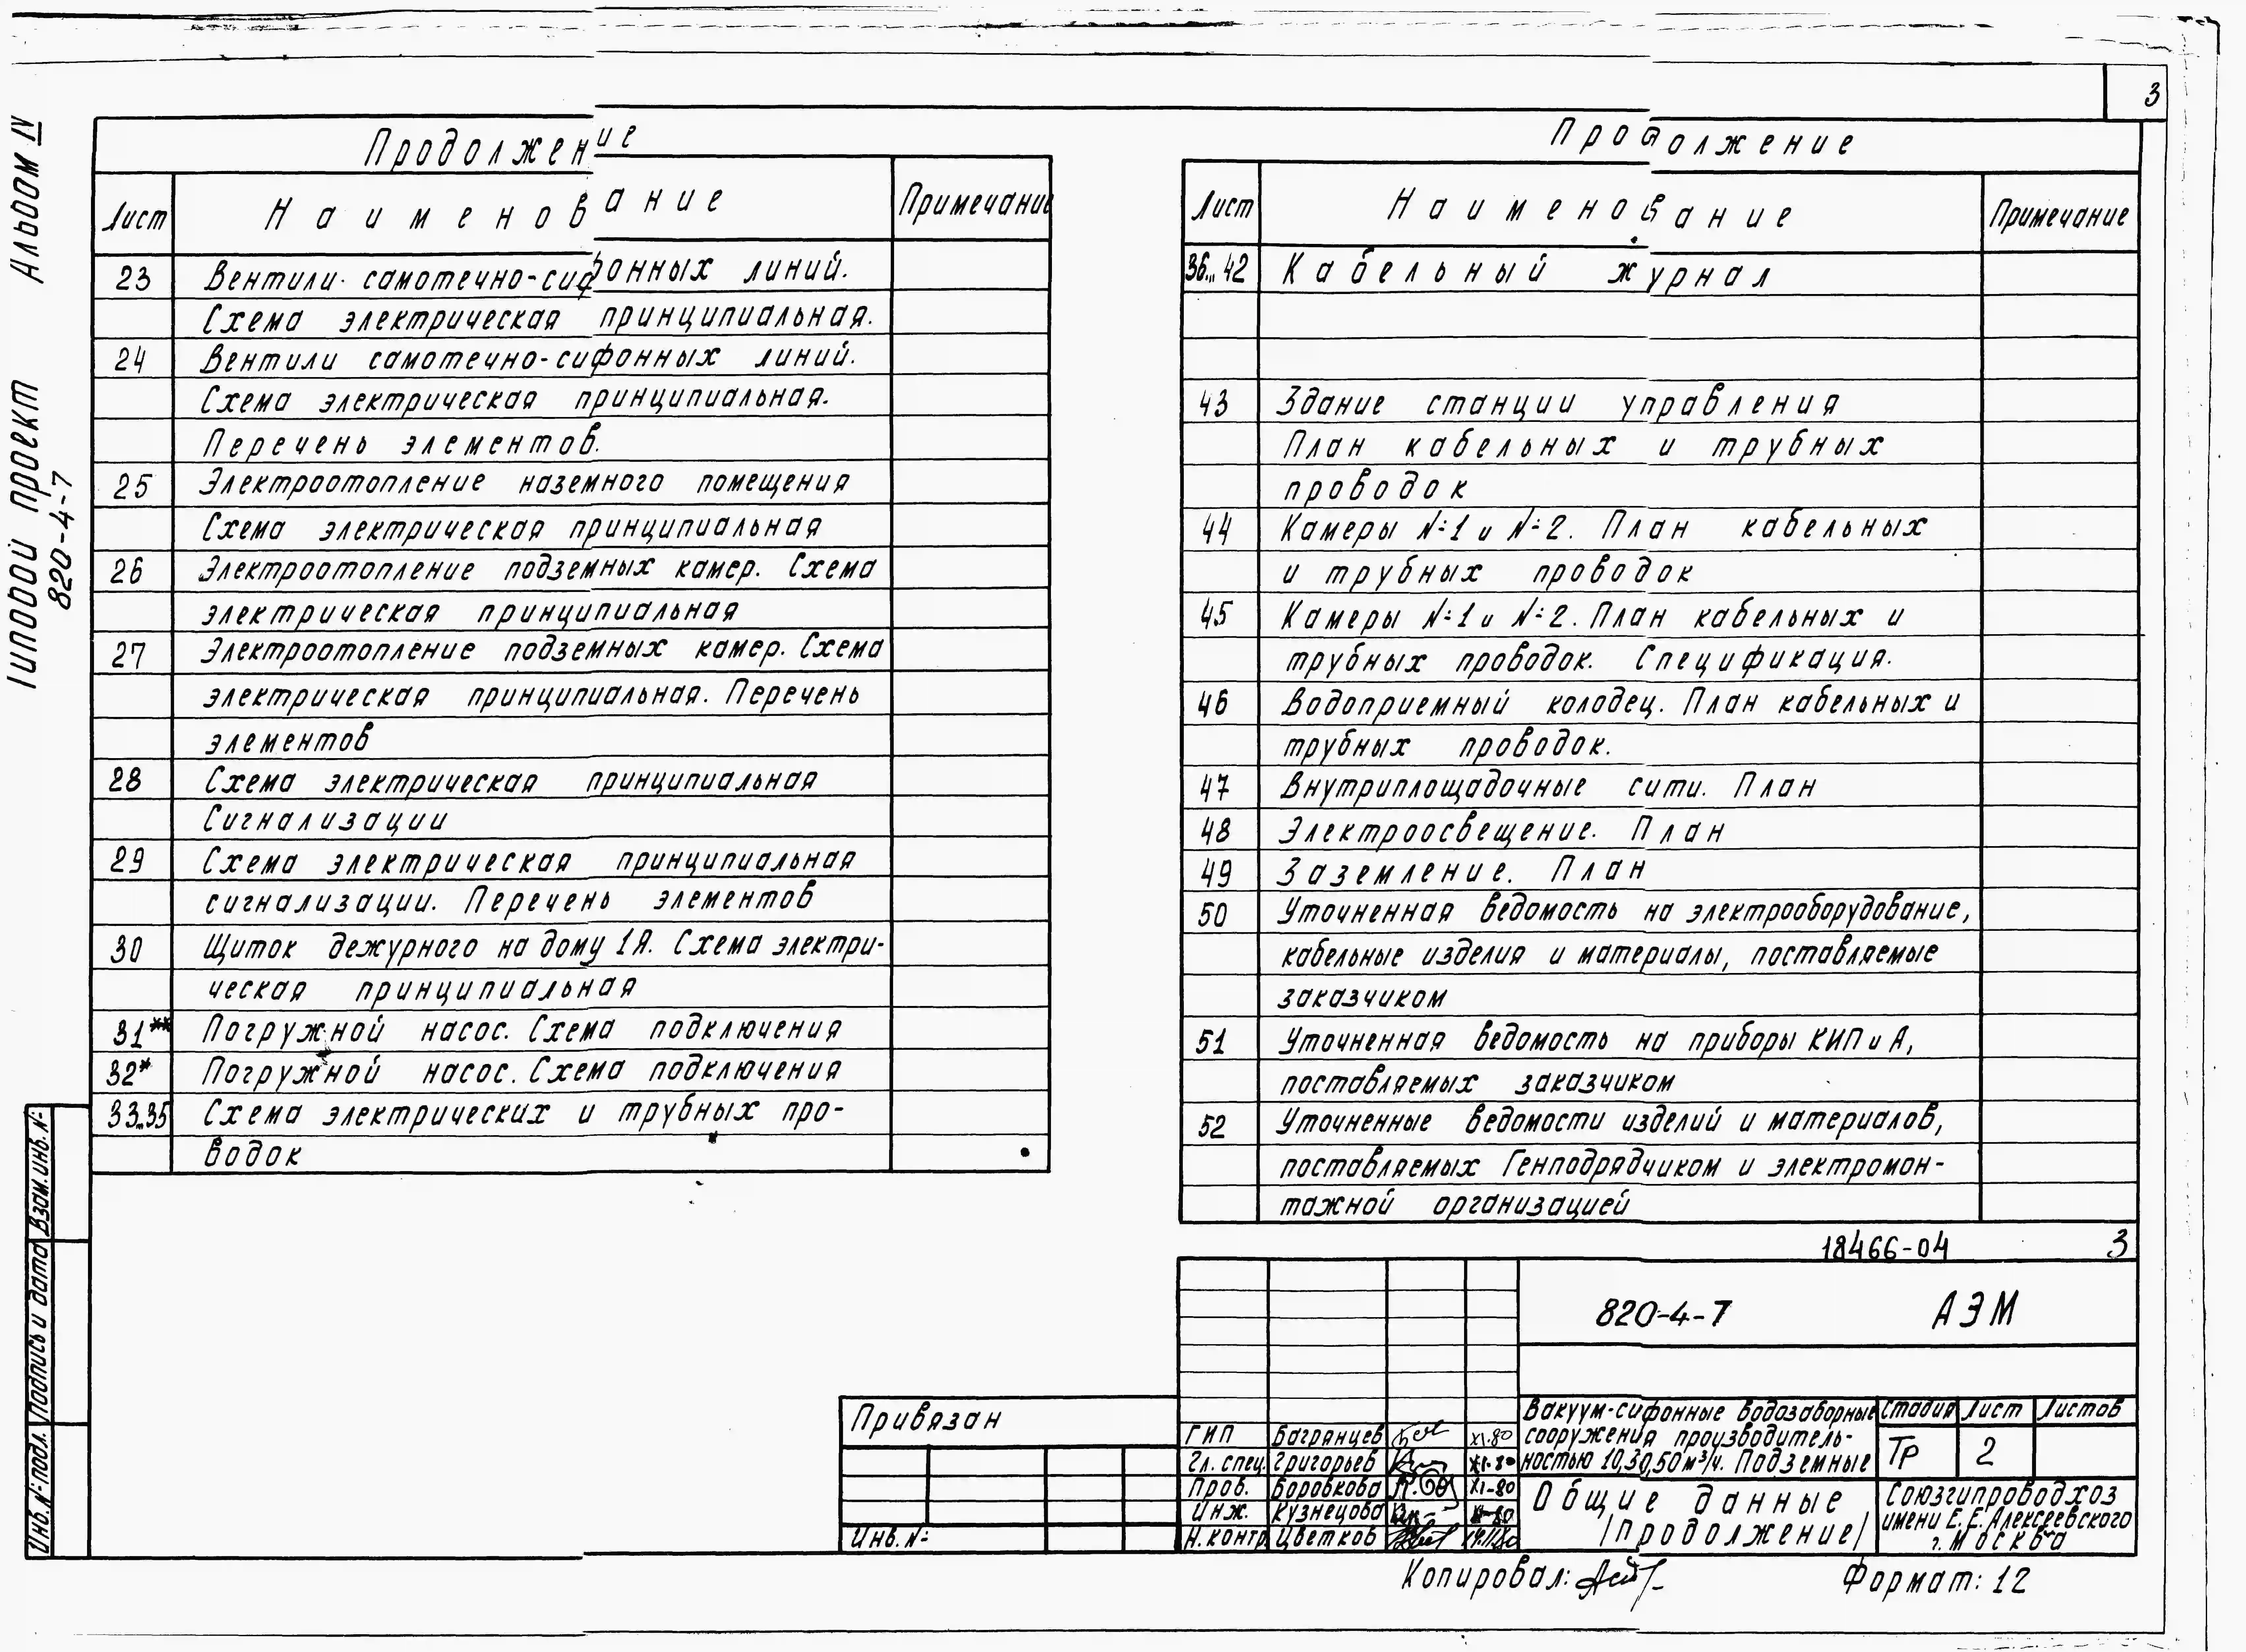 3
Альбом IV
Типовой проект
820-4-7
Продолжение
Лист Наименование Примечание
23 Вентили самотечно-сифонных линий.
Схема электрическая принципиальная.
24 Вентили самотечно-сифонных линий.
Схема электрическая принципиальная.
Перечень элементов.
25 Электроотопление наземного помещения
Схема электрическая принципиальная
26 Электроотопление подземных камер. Схема
электрическая принципиальная
27 Электроотопление подземных камер. Схема
электрическая принципиальная. Перечень
элементов
28 Схема электрическая принципиальная
Сигнализации
29 Схема электрическая принципиальная
сигнализации. Перечень элементов
30 Щиток дежурного на дому 1Я. Схема электри-
ческая принципиальная
31** Погружной насос. Схема подключения
32* Погружной насос. Схема подключения
33...35 Схема электрических и трубных про-
водок
Продолжение
Лист Наименование Примечание
36...42 Кабельный журнал
43 Здание станции управления
План кабельных и трубных
проводок
44 Камеры №1 и №2. План кабельных
и трубных проводок
45 Камеры №1 и №2. План кабельных и
трубных проводок. Спецификация.
46 Водоприемный колодец. План кабельных и
трубных проводок.
47 Внутриплощадочные сити. План
48 Электроосвещение. План
49 Заземление. План
50 Уточненная ведомость на электрооборудование,
кабельные изделия и материалы, поставляемые
заказчиком
51 Уточненная ведомость на приборы КИП и А,
поставляемых заказчиком
52 Уточненные ведомости изделий и материалов,
поставляемых Генподрядчиком и электромон-
тажной организацией
18466-04 3
820-4-7 АЭМ
Привязан
Инв. №
ГИП Багрянцев XI.80
Гл. спец. Григорьев XI-80
Пров. Боровкова XI-80
Инж. Кузнецова XI-80
Н. контр. Цветков
Вакуум-сифонные водозаборные
сооружения производитель-
ностью 10,30,50м³/ч. Подземные
Стадия Лист Листов
ТР 2
Общие данные
/продолжение/
Союзгипроводхоз
имени Е.Е. Алексеевского
г. Москва
Копировал: Формат: 12
Взам. инв. №
Подпись и дата
Инв. № подл.